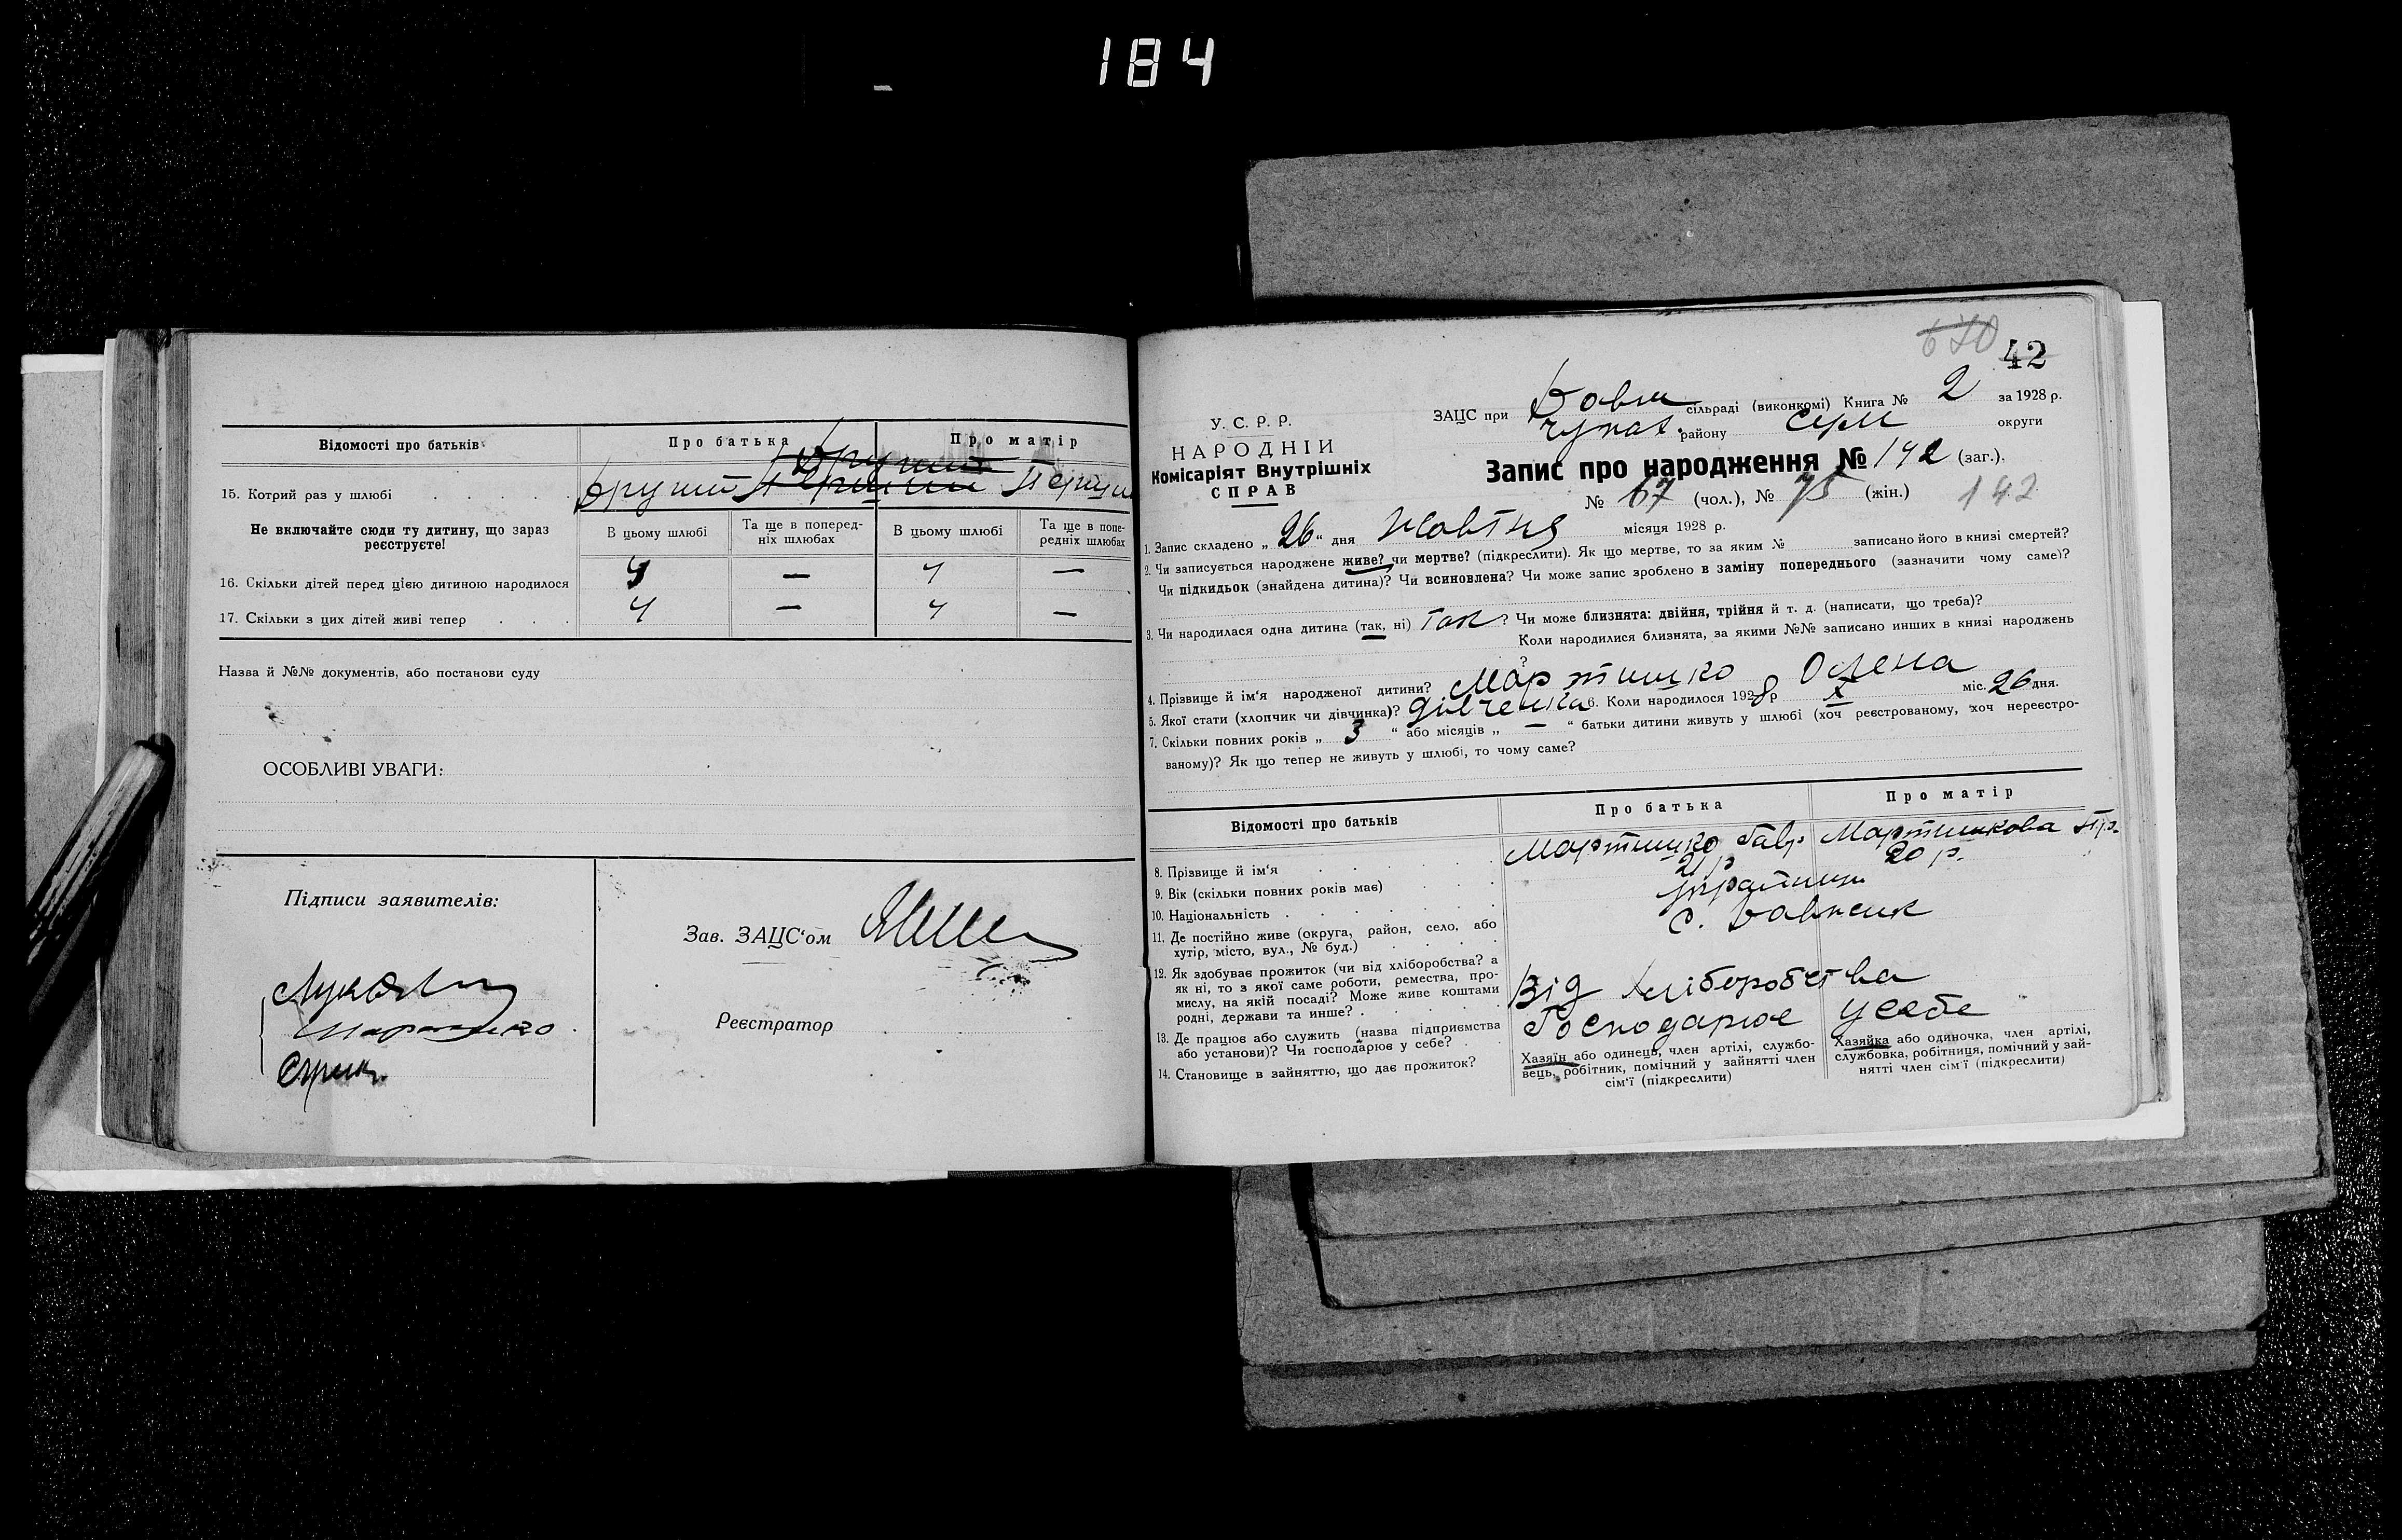 184
Відомості про батьків
Про батька
Про матір
15. Котрий раз у шлюбі
Другий
Другий
Первий
Не включайте сюди ту дитину, що зараз
реєструєте!
В цьому шлюбі
Та ще в поперед-
ніх шлюбах
В цьому шлюбі
Та ще в попе-
редніх шлюбах
16. Скільки дітей перед цією дитиною народилося
— 4 —
17. Скільки з цих дітей живі тепер
4 — 4 —
Назва й №№ документів, або постанови суду
ОСОБЛИВІ УВАГИ:
Підписи заявителів:
Зав. ЗАЦС‘ом
Реєстратор
670
42
У. С. Р. Р.
НАРОДНІЙ
Комісаріят Внутрішніх
СПРАВ
ЗАЦС при Довж сільраді (виконкомі) Книга № 2 за 1928 р.
району округи
Запис про народження № 142 (заг.),
№ 67 (чол.), № 75 (жін.)
142
1. Запис складено „ 26 “ дня Жовтня місяця 1928 р.
2. Чи записується народжене живе? чи мертве? (підкреслити). Як що мертве, то за яким № записано його в книзі смертей?
Чи підкидьок (знайдена дитина)? Чи всиновлена? Чи може запис зроблено в заміну попереднього (зазначити чому саме)?
3. Чи народилася одна дитина (так, ні) так ? Чи може близнята: двійня, трійня й т. д. (написати, що треба)?
Коли народилися близнята, за якими №№ записано инших в книзі народжень
?
4. Прізвище й ім‘я народженої дитини? Мартишко Олена
5. Якої стати (хлопчик чи дівчинка)? дівченка 6. Коли народилося 1928 р X міс. 26 дня.
7. Скільки повних років „ 3 “ або місяців „ — “ батьки дитини живуть у шлюбі (хоч реєстрованому, хоч нереєстро-
ваному)? Як що тепер не живуть у шлюбі, то чому саме?
Відомості про батьків
Про батька
Про матір
8. Прізвище й ім‘я
Мартишко Гавр
Мартишкова
9. Вік (скільки повних років має)
21 р
20 р.
10. Національність
11. Де постійно живе (округа, район, село, або
хутір, місто, вул., № буд.)
с.
12. Як здобуває прожиток (чи від хліборобства? а
як ні, то з якої саме роботи, ремества, про-
мислу, на якій посаді? Може живе коштами
родні, держави та инше?
Від хліборобства
13. Де працює або служить (назва підприємства
або установи)? Чи господарює у себе?
Господарює у себе
14. Становище в зайняттю, що дає прожиток?
Хазяїн або одинець, член артілі, службо-
вець, робітник, помічний у зайнятті член
сім‘ї (підкреслити)
Хазяйка або одиночка, член артілі,
службовка, робітниця, помічний у зай-
нятті член сім‘ї (підкреслити)